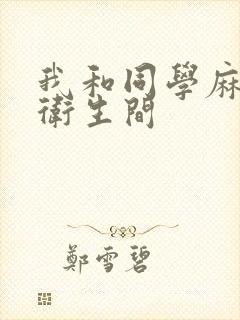 我和同學麻
衛生間
鄭雪碧